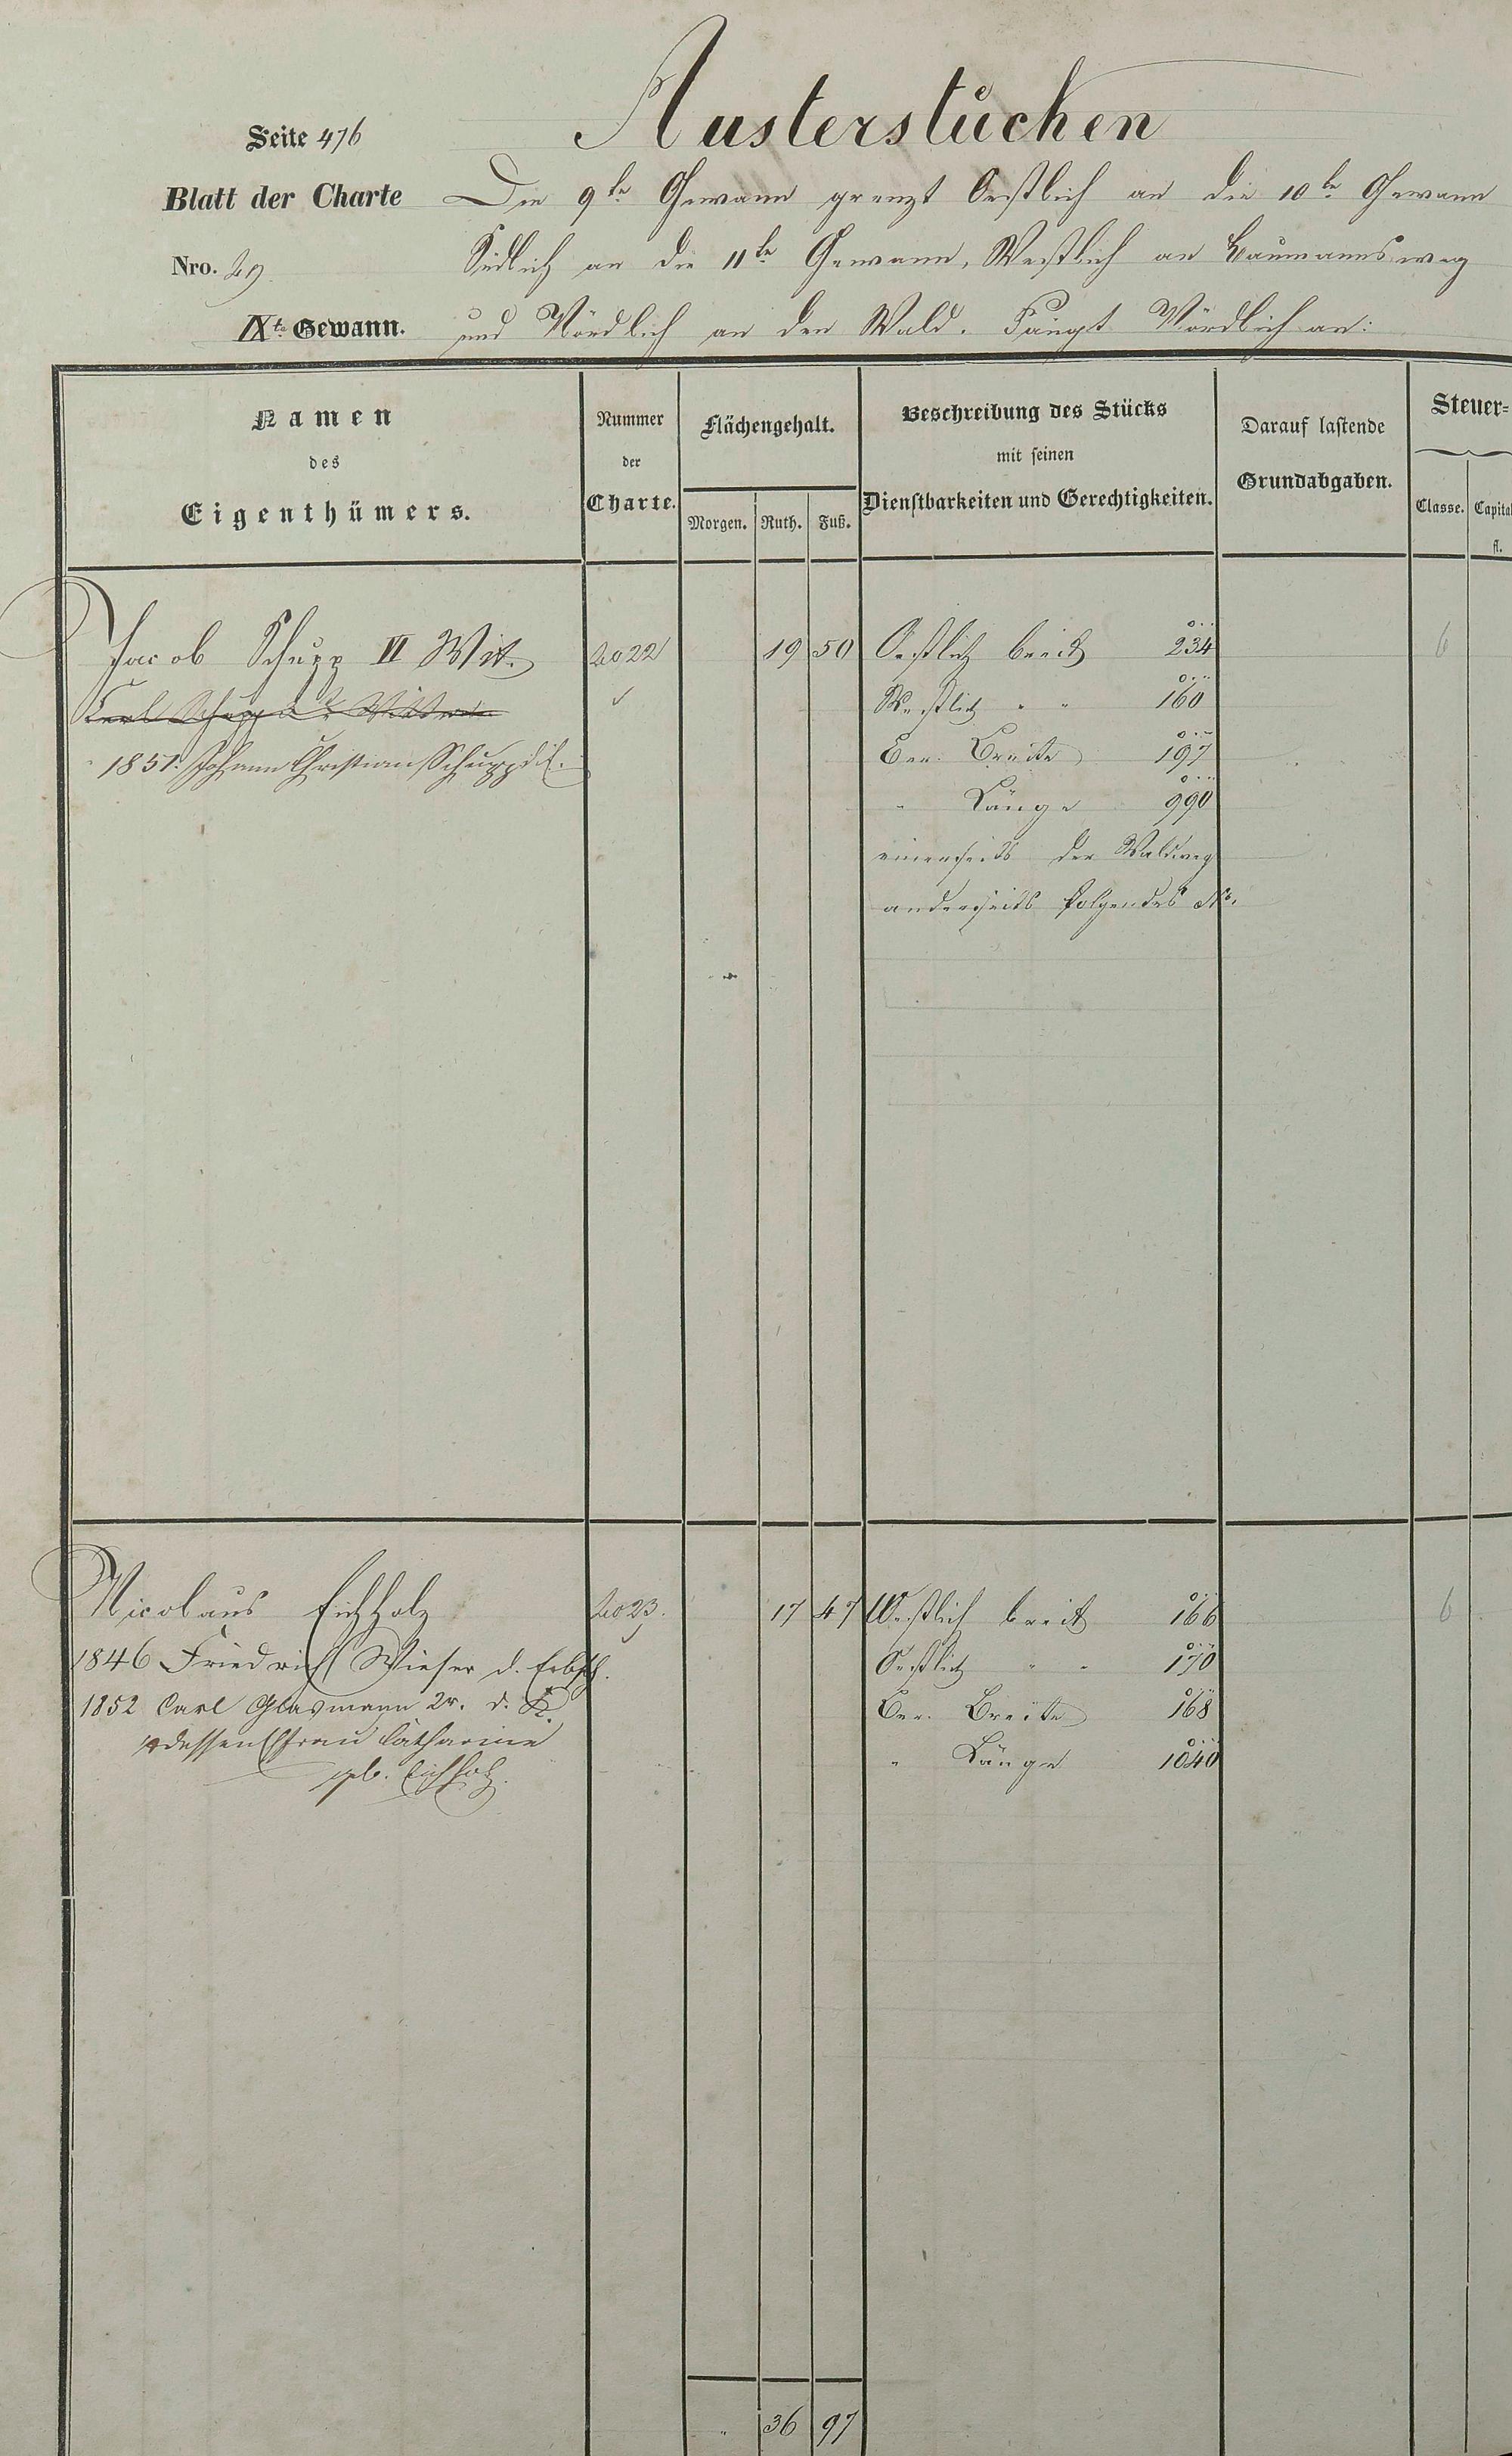 Austerstücken
Seite 476
Blatt der Charte
Nro. 29.
IXte Gewann.
Die 9te Gewann grenzt Oestlich an die 10te Gewann
Südlich an die 11te Gewann, Westlich an Baumannsweg
und Nördlich an den Wald. Fängt Nördlich an:
Namen
des
Eigenthümers.
Nummer
der
Charte.
Flächengehalt.
Morgen. Ruth. Fuß.
Beschreibung des Stücks
mit seinen
Dienstbarkeiten und Gerechtigkeiten.
Darauf lastende
Grundabgaben.
Steuer=
Classe. Capital
fl.
Jacob Schupp VI Wit. 2022 19 50 Oestlich breit 234 6
Carl Schupp Wittwe Westlich " " 160
1851. Johann Christian Schupp Ber. Breite 197
" Länge 990
einerseits der Waldweg
anderseits folgendes No.
Nicolaus Eichholz 2023. 17 47 Westlich breit 166 6
1846 Friedrich Wieser d. Erbsch. Oestlich " " 170
1852 Carl Glasmann 2r. d. K. Ber. Breite 168
dessen Ehfrau Catharine " Länge 1040
geb. Eichholz.
" 36 97